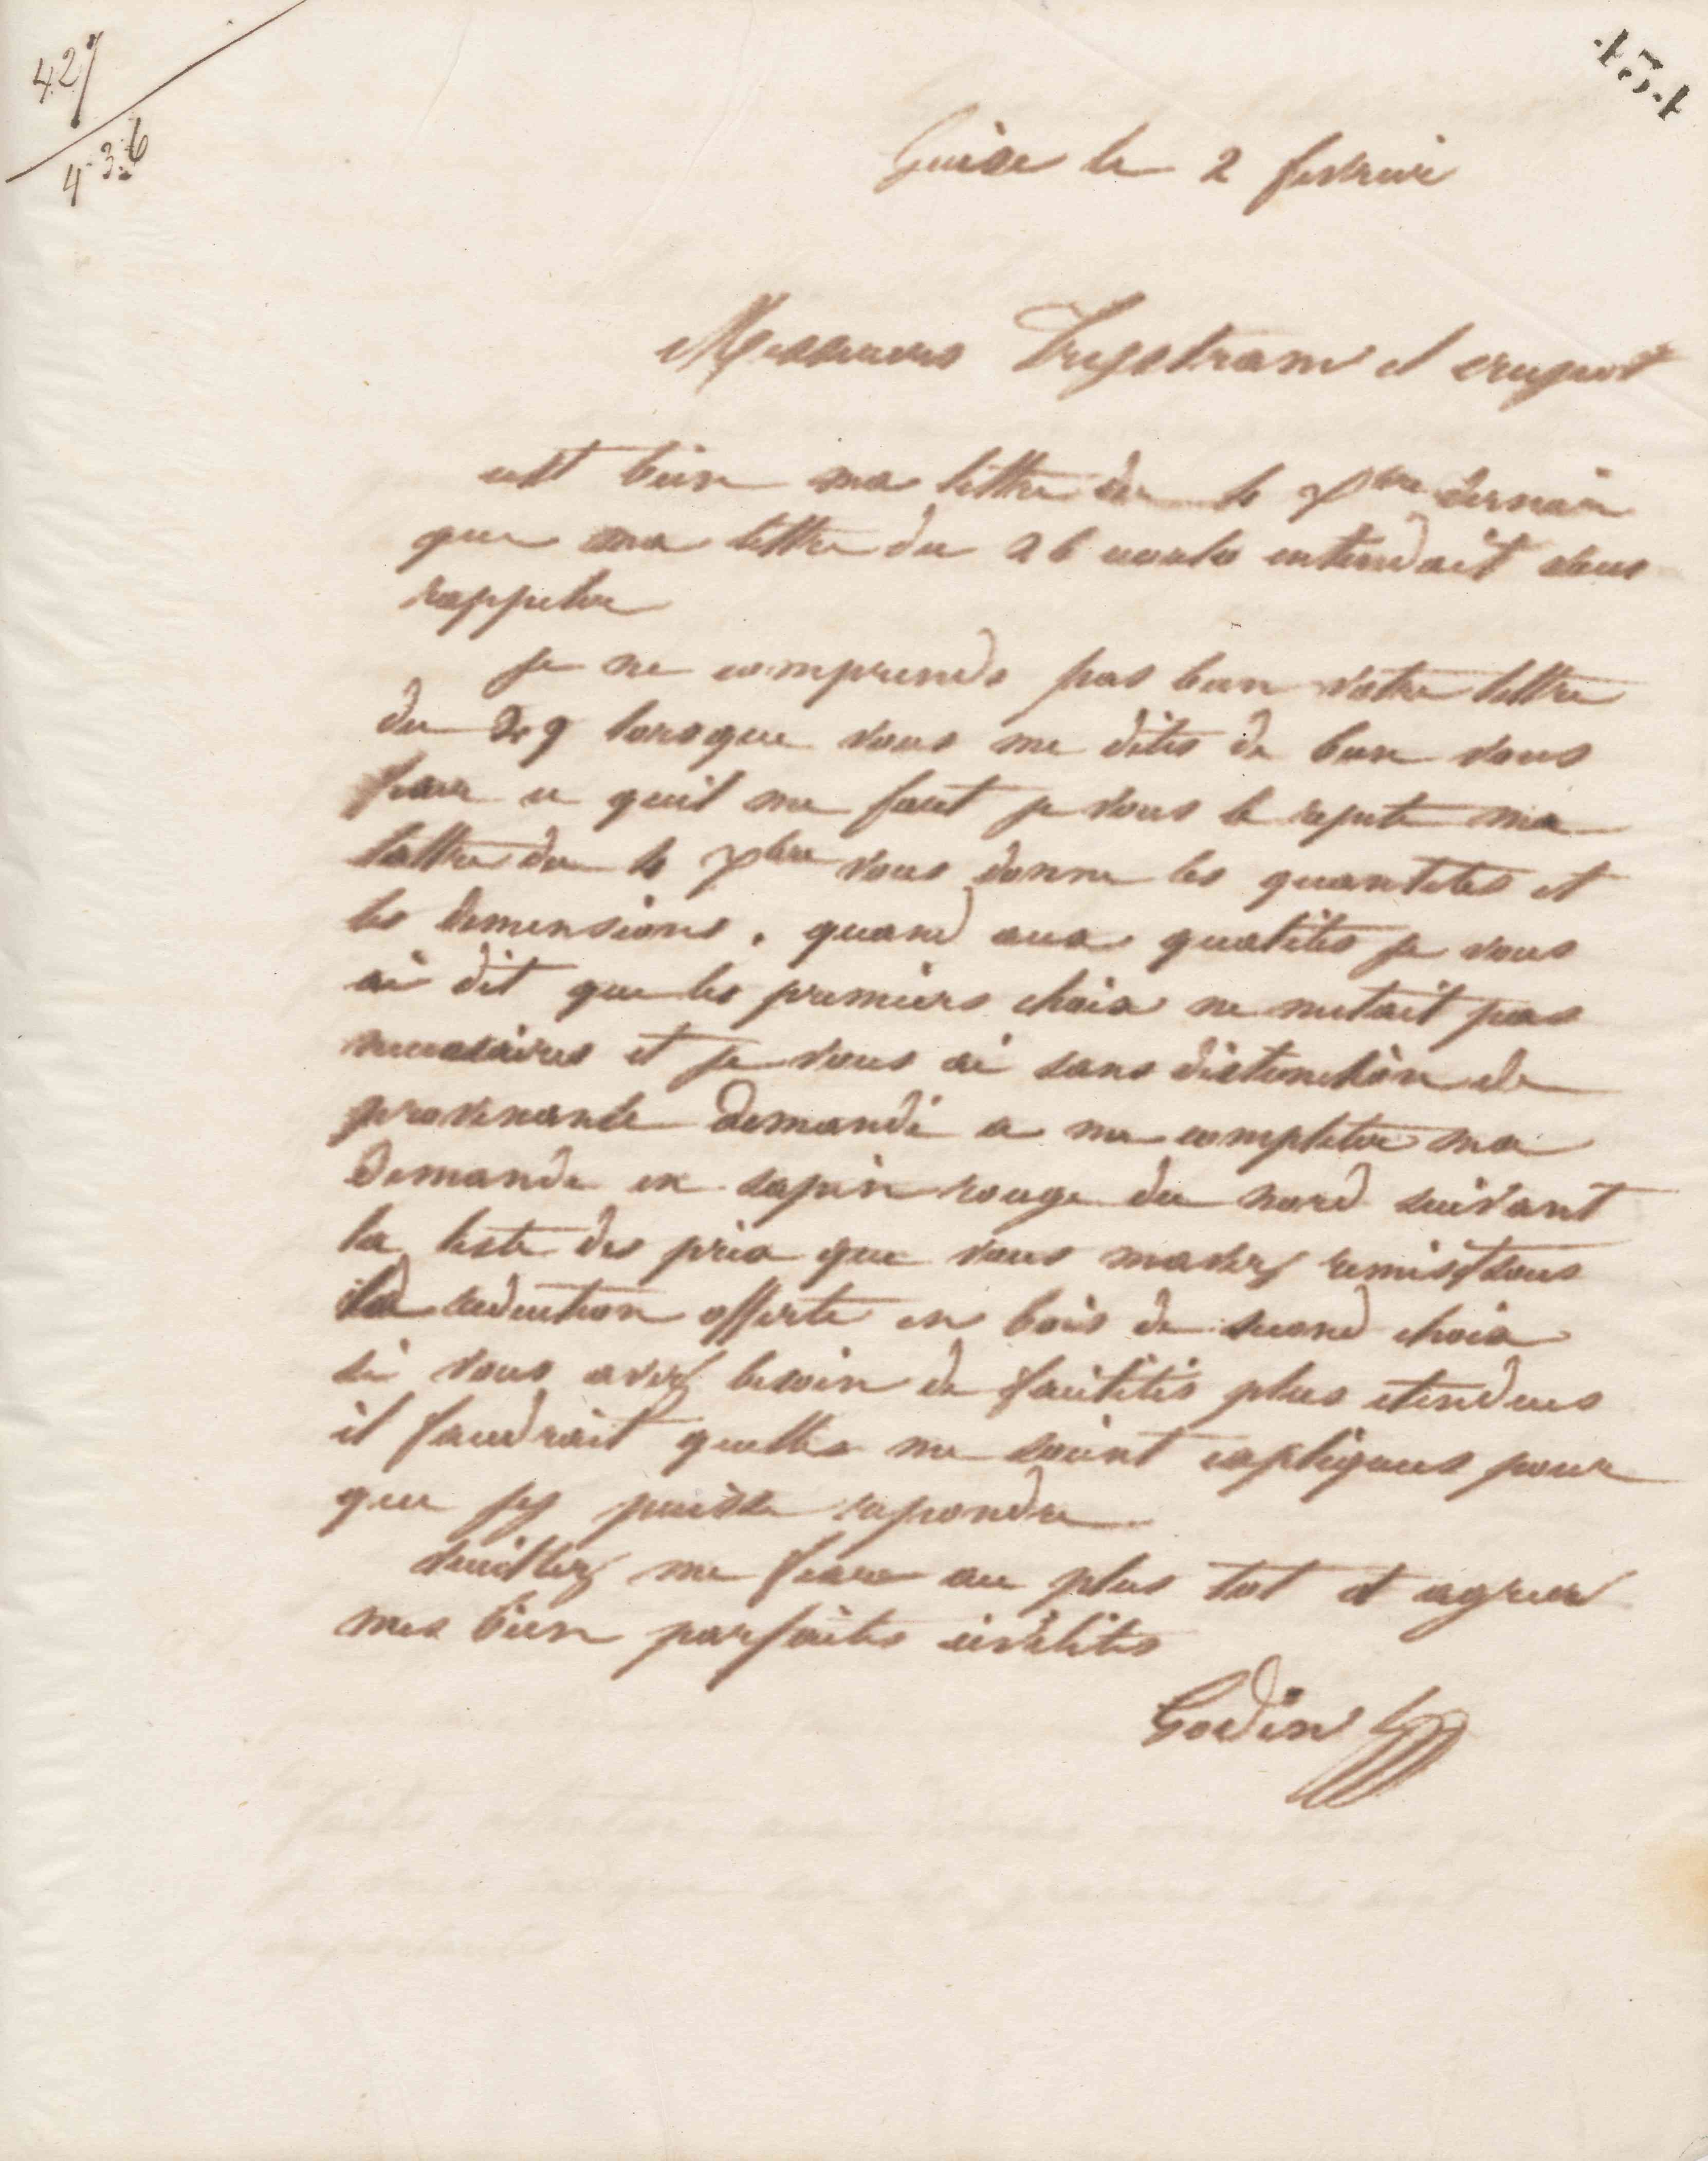 427
436
431
Guise le 2 fevrier
Messieurs Trystram et crujeot
cest bien ma lettre du 10 Xbre dernier
que ma lettre du 26 ecoule entendait vous
rappeler
je ne comprends pas bien votre lettre
du 29 lorsque vous me dites de bien vous
fixer ce quil me faut je vous le repete ma
lettre du 10 Xbre vous donne les quantites et
les dimensions. quand aux qualites je vous
ai dit que les premiers choix ne metait pas
necessaires et je vous ai sans distinction de
provenance demandé a me completer ma
demande en sapin rouge du nord suivant
la liste des prix que vous mavez remis sous
la reduction offerte en bois de second choix
si vous avez besoin de facilités plus etendues
il faudrait quelles me soient expliquees pour
que jy puisse repondre
veuillez me fixer au plus tot et agreer
mes bien parfaites civilités
Godin